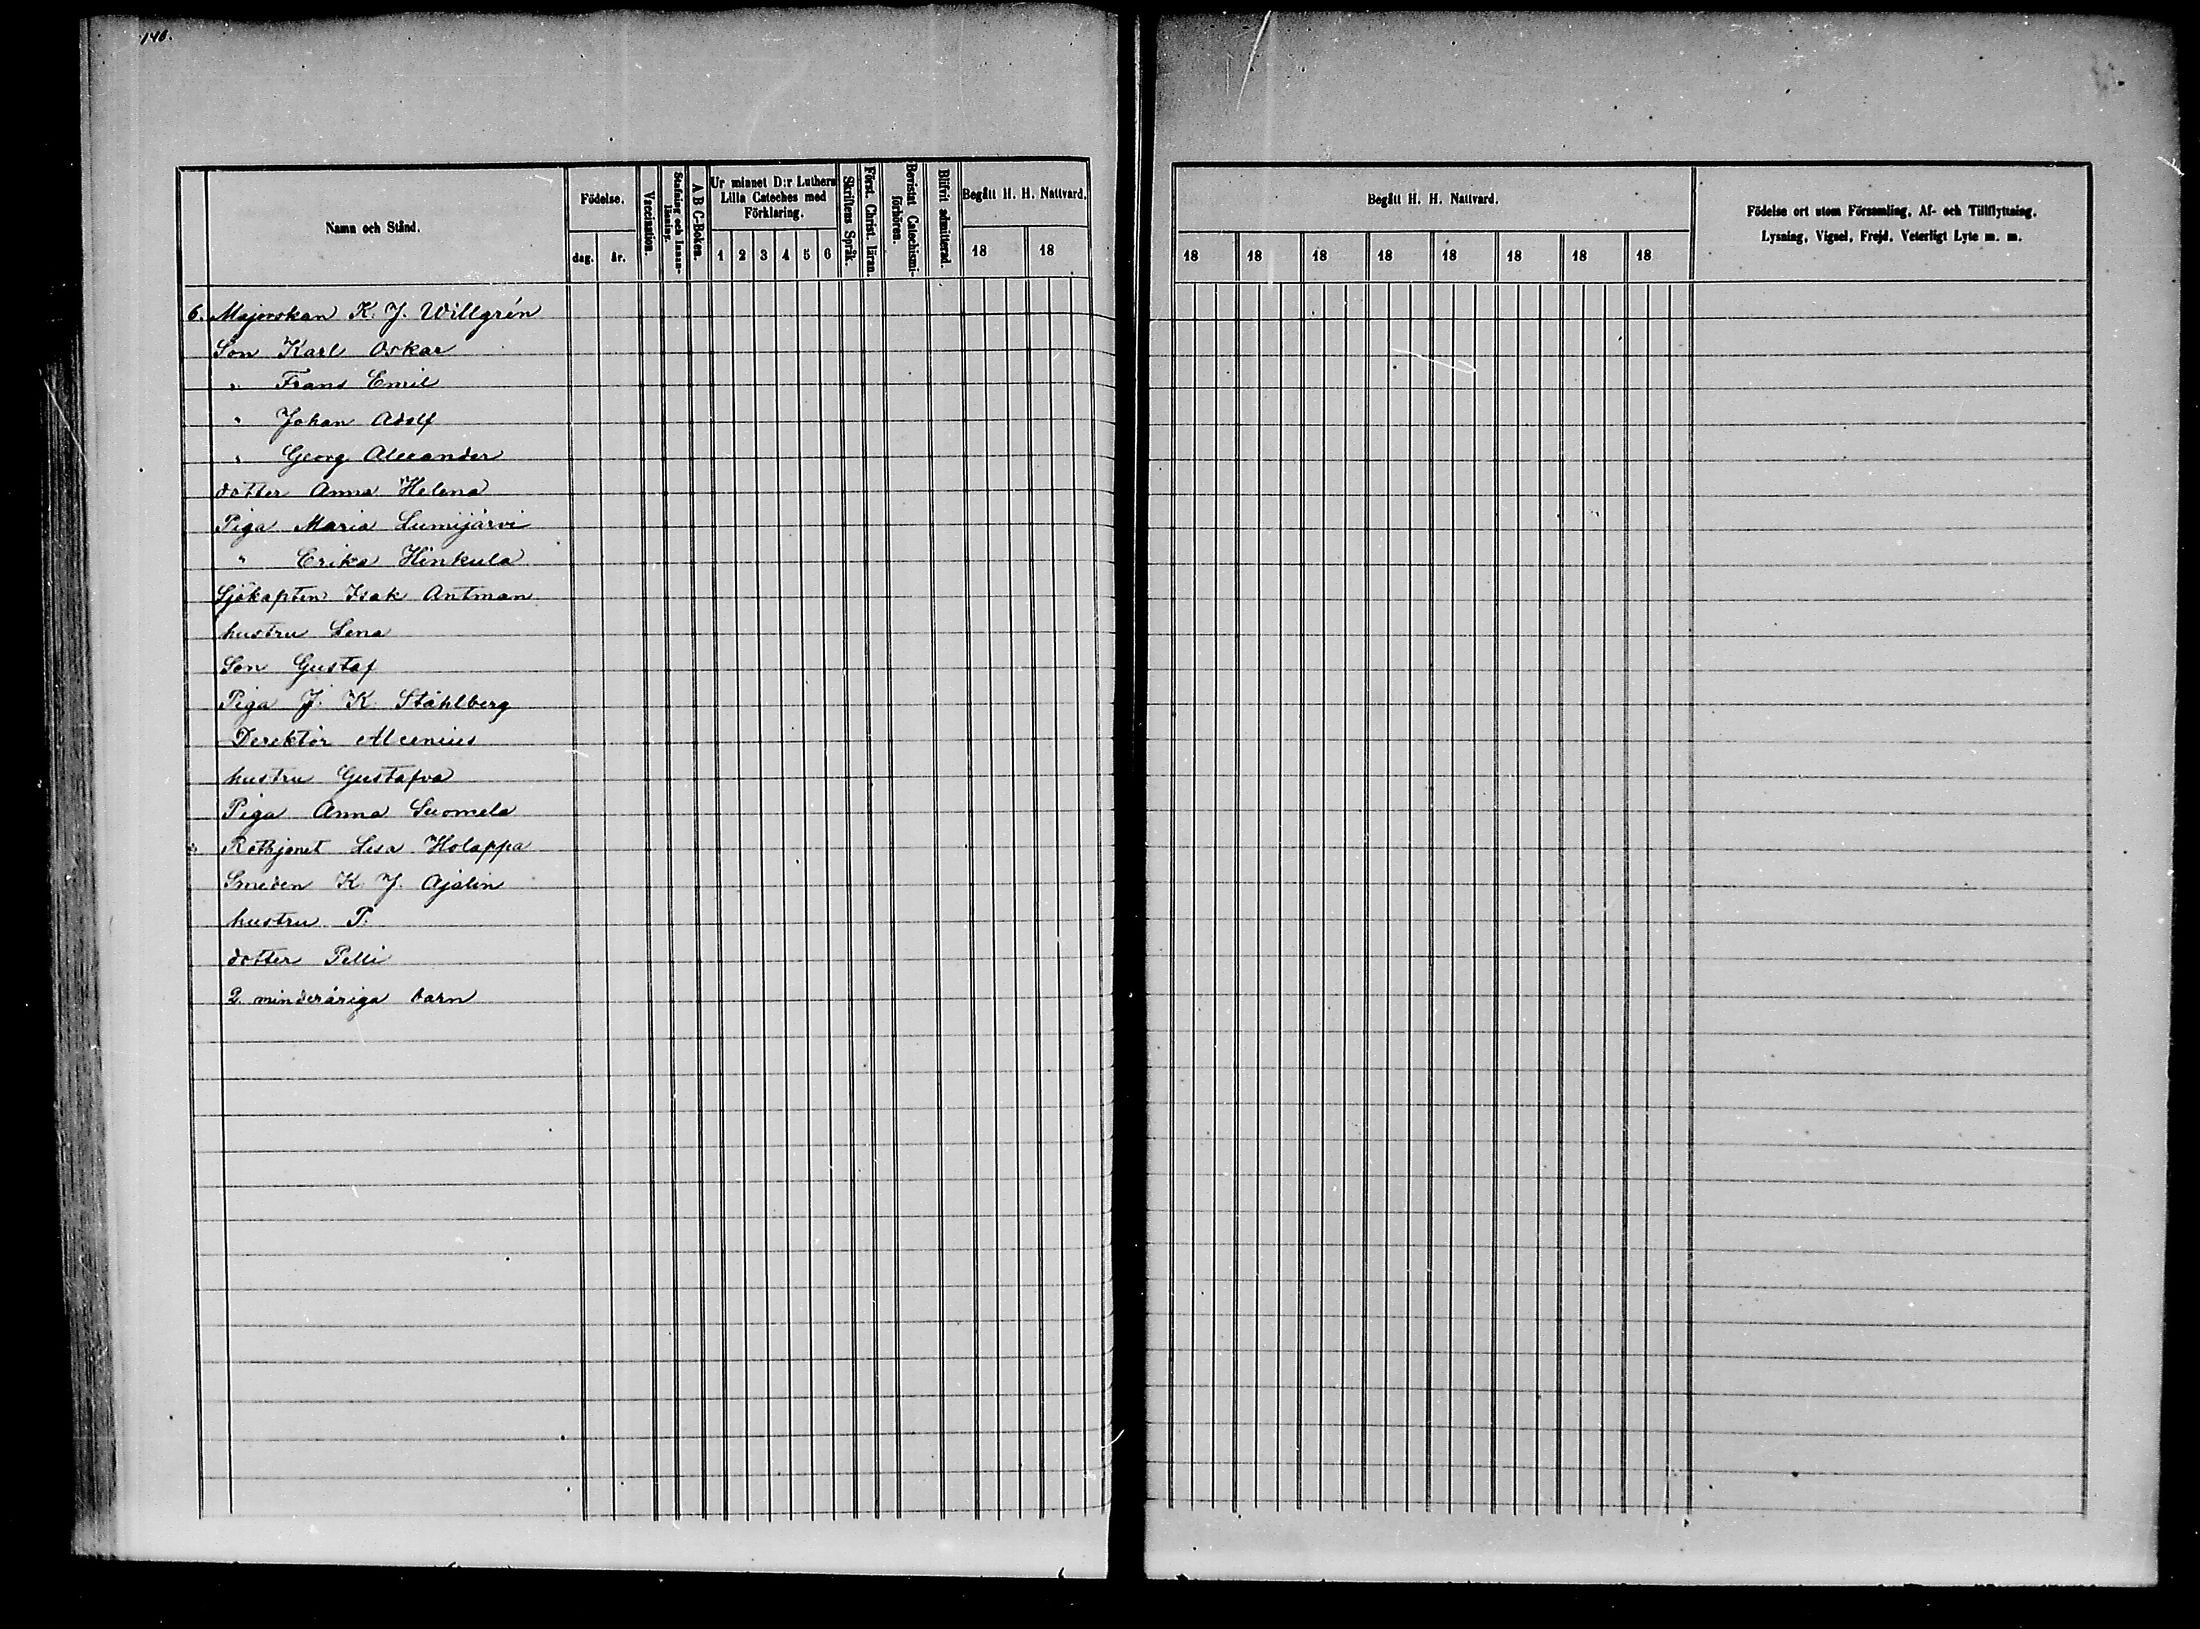 140.
Namn och Stånd.
Födelse.
dag.
år.
Vaccination.
Stafning och Innan-
läsning.
A B C-Boken.
Ur minnet D:r Luthers
Lilla Cateches med
Förklaring.
1 2 3 4 5 6
Skriftens Språk.
Först. Christ. läran.
Bevistat Catechismi-
förhören.
Blifvit admitterad.
Begått H. H. Nattvard.
18 18
6. Majorskan K. J. Willgrén
Son Karl Oskar
" Frans Emil
" Johan Adolf
" Georg Alexander
dotter Anna Helena
Piga Maria Lumijärvi
" Erika Hinkula
Sjökapten Isak Antman
hustru Lena
Son Gustaf
Piga J. K. Ståhlberg
Derektör Alcenius
hustru Gustafva
Piga Anna Suomela
Rothjonet Lisa Holappa
Smeden K. J. Ajalin
hustru P.
dotter Pelli
2 minderåriga barn
Begått H. H. Nattvard.
18 18 18 18 18 18 18 18
Födelse ort utom Församling, Af- och Tillflyttning,
Lysning, Vigsel, Frejd, Veterligt Lyte m. m.